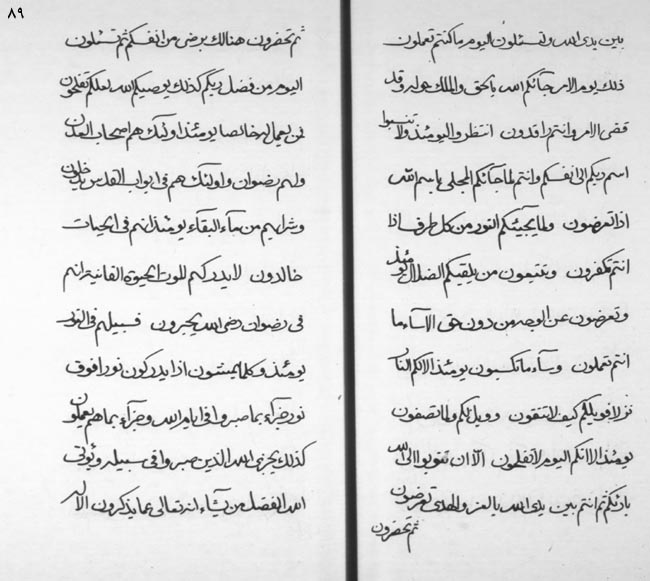 ٨٩
بين يدى الله وتسئلون اليوم ما كنتم تعملون
ذلك يوم الامر جآئكم الله بالحق والملك حوله وقد
قضى الامر وانتم راقدون انتظروا ليومئذ ولا تنسبوا
اسم ربكم الى انفسكم وانتم لما جآئكم المجلى باسم الله
اذا تعرضون ولما يجيئكم النور من كل طرف اذا
انتم تكفرون وتتبعون من يلقيكم الضلال يومئذ
وتعرضون عن الوجه من دون حق الا سآء ما
انتم تعملون وسآء ما تكسبون يومئذ الا لكم النار
نزلا فويل لكم كيف لا تتقون وويل لكم ولما تصفون
يومئذ الا انكم اليوم لا تفلحون الّا ان تتوبوا الى الله
بارئكم ثم انتم بين يدى الله بالعز والهدى تعرضون
ثم تحضرون
ثم تحضرون هنالك برضى من انفسكم ثم تسئلون
اليوم من فضل ربكم كذلك يوصيكم الله لعلكم تفلحون
فمن يعمل لله خالصا يومئذ اولئك هم اصحاب العدن
ولهم رضوان واولئك هم فى ابواب القدس يدخلون
وشرابهم من مآء البقآء يومئذ انهم فى الحيات
خالدون لا يدركهم الموت الحيوة الفانية انهم
فى رضوان رضى الله يحبرون فسبيلهم فى النور
يومئذ وكلما يمشون اذا يدركون نورا فوق
نور جزآء بما صبروا فى ايام الله وجزآء بما هم يعملون
كذلك يجزى الله الذين صبروا فى سبيله ويؤتى
الله الفضل من يشآء انه تعالى عما يذكرون الا له